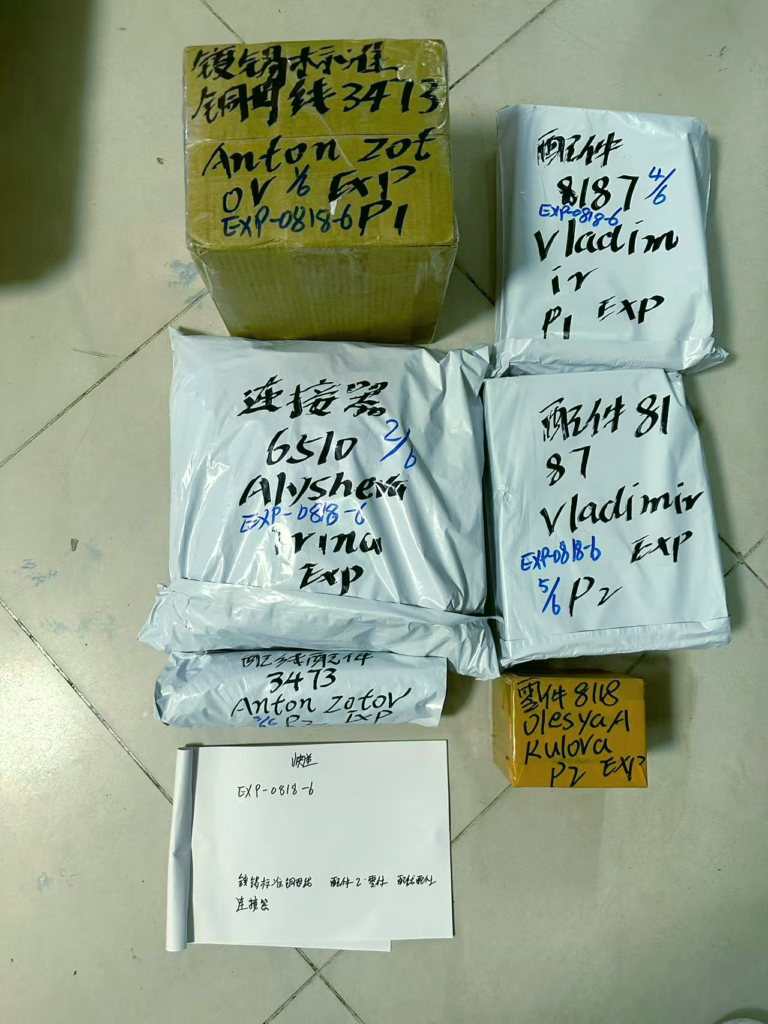 镀锡标准
铜母线3473
Anton Zot
ov 1/6 Exp
EXP-0818-6 P1
配件
8187 4/6
EXP-0818-6
Vladim
ir
P1 EXP
连接器
6510 2/6
Alysheva
EXP-0818-6
Irina
Exp
配件 81
87
Vladimir
EXP-0818-6 EXP
5/6 P2
配线配件
3473
Anton Zotov
P2 EXP
零件 8118
Olesya A
Kulova
P2 EXP
快递
EXP-0818-6
镀锡标准铜母线 配件2 零件 配线配件
连接器